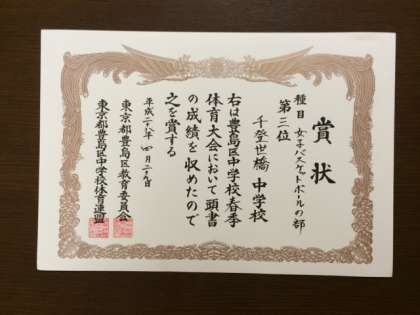 賞状
種目 女子バスケットボールの部
第三位
千登世橋 中学校
右は豊島区中学校春季
体育大会において頭書
の成績を収めたので
之を賞する
平成二十八年 四月二十九日
東京都豊島区教育委員会
東京都豊島区中学校体育連盟